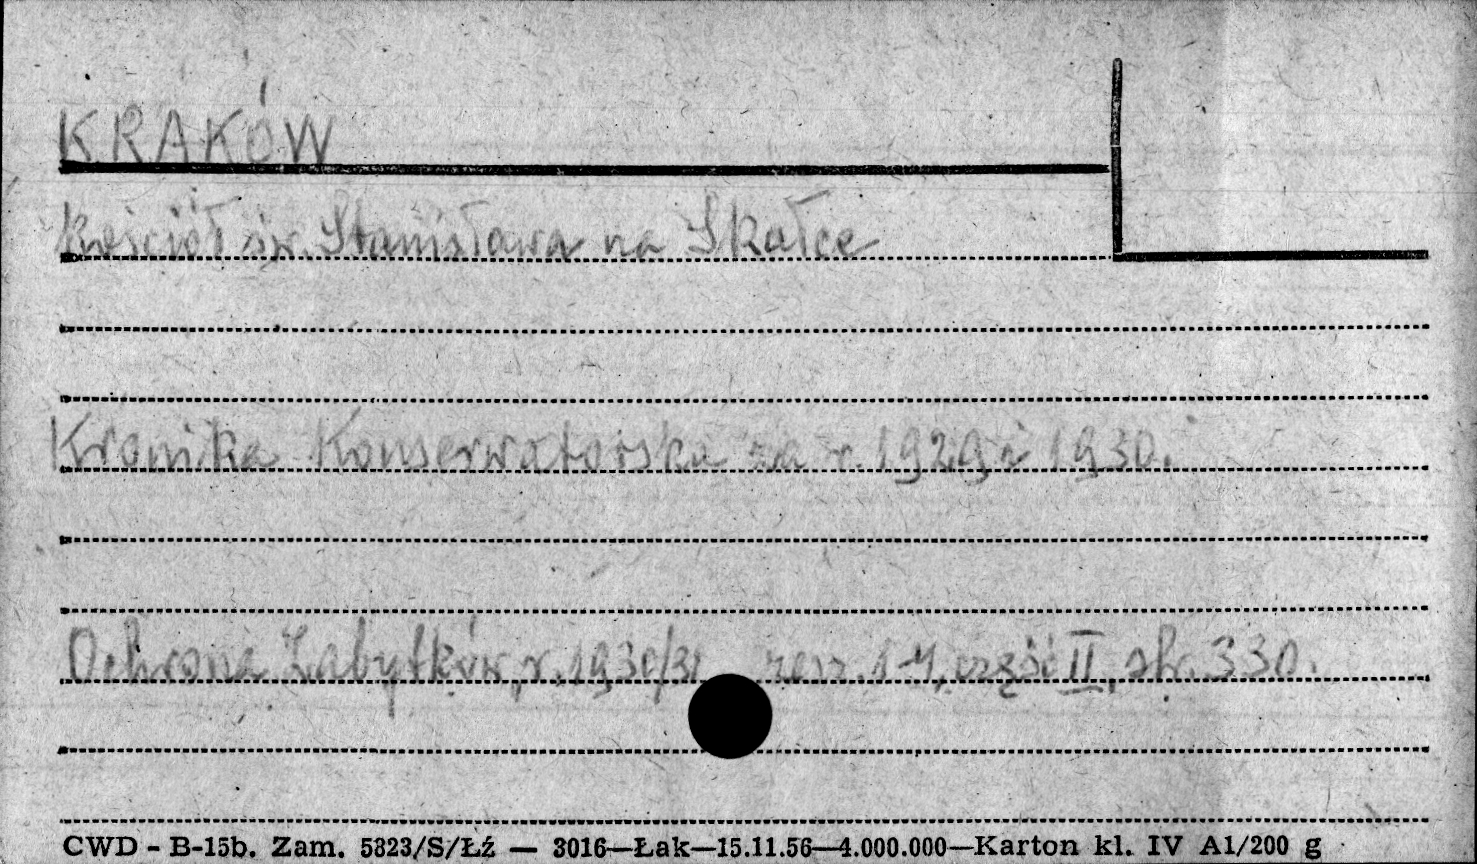 KRAKÓW
Kościół św. Stanisława na Skałce
Kronika Konserwatorska za r. 1929 i 1930.
Ochrona Zabytków, r. 1930/31 zesz. 1-4, część II, str. 330.
CWD - B-15b. Zam. 5823/S/Łź — 3016—Łak—15.11.56—4.000.000—Karton kl. IV A1/200 g